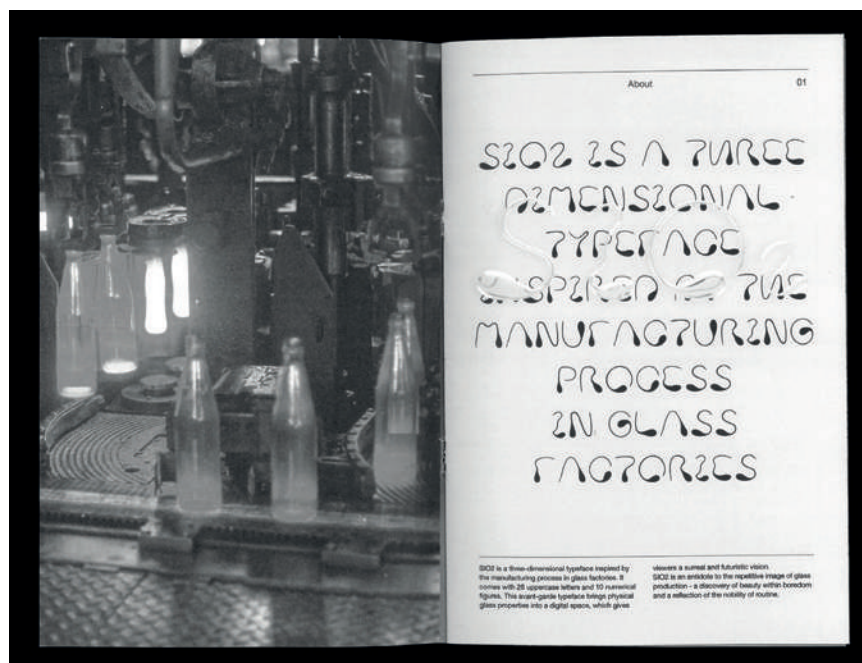 About 01
SIO2 IS A THREE
DIMENSIONAL
TYPEFACE
INSPIRED BY THE
MANUFACTURING
PROCESS
IN GLASS
FACTORIES
SIO2 is a three-dimensional typeface inspired by
the manufacturing process in glass factories. It
comes with 26 uppercase letters and 10 numerical
figures. This avant-garde typeface brings physical
glass properties into a digital space, which gives
viewers a surreal and futuristic vision.
SIO2 is an antidote to the repetitive image of glass
production - a discovery of beauty within boredom
and a reflection of the nobility of routine.